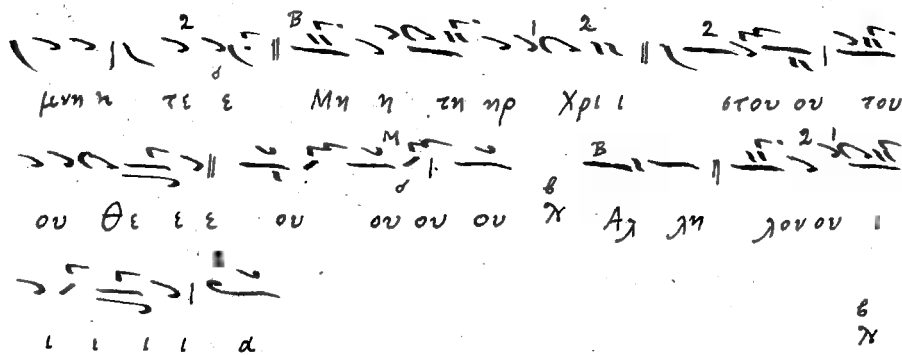 μνη η τε ε Μη η τη ηρ Χρι ι στου ου του
ου Θε ε ε ου ου ου ου Αλ λη λου ου ι
ι ι ι ι α